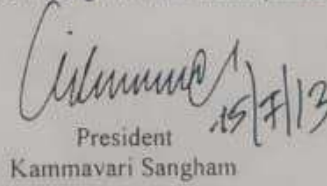 15/7/13
President
Kammavari Sangham